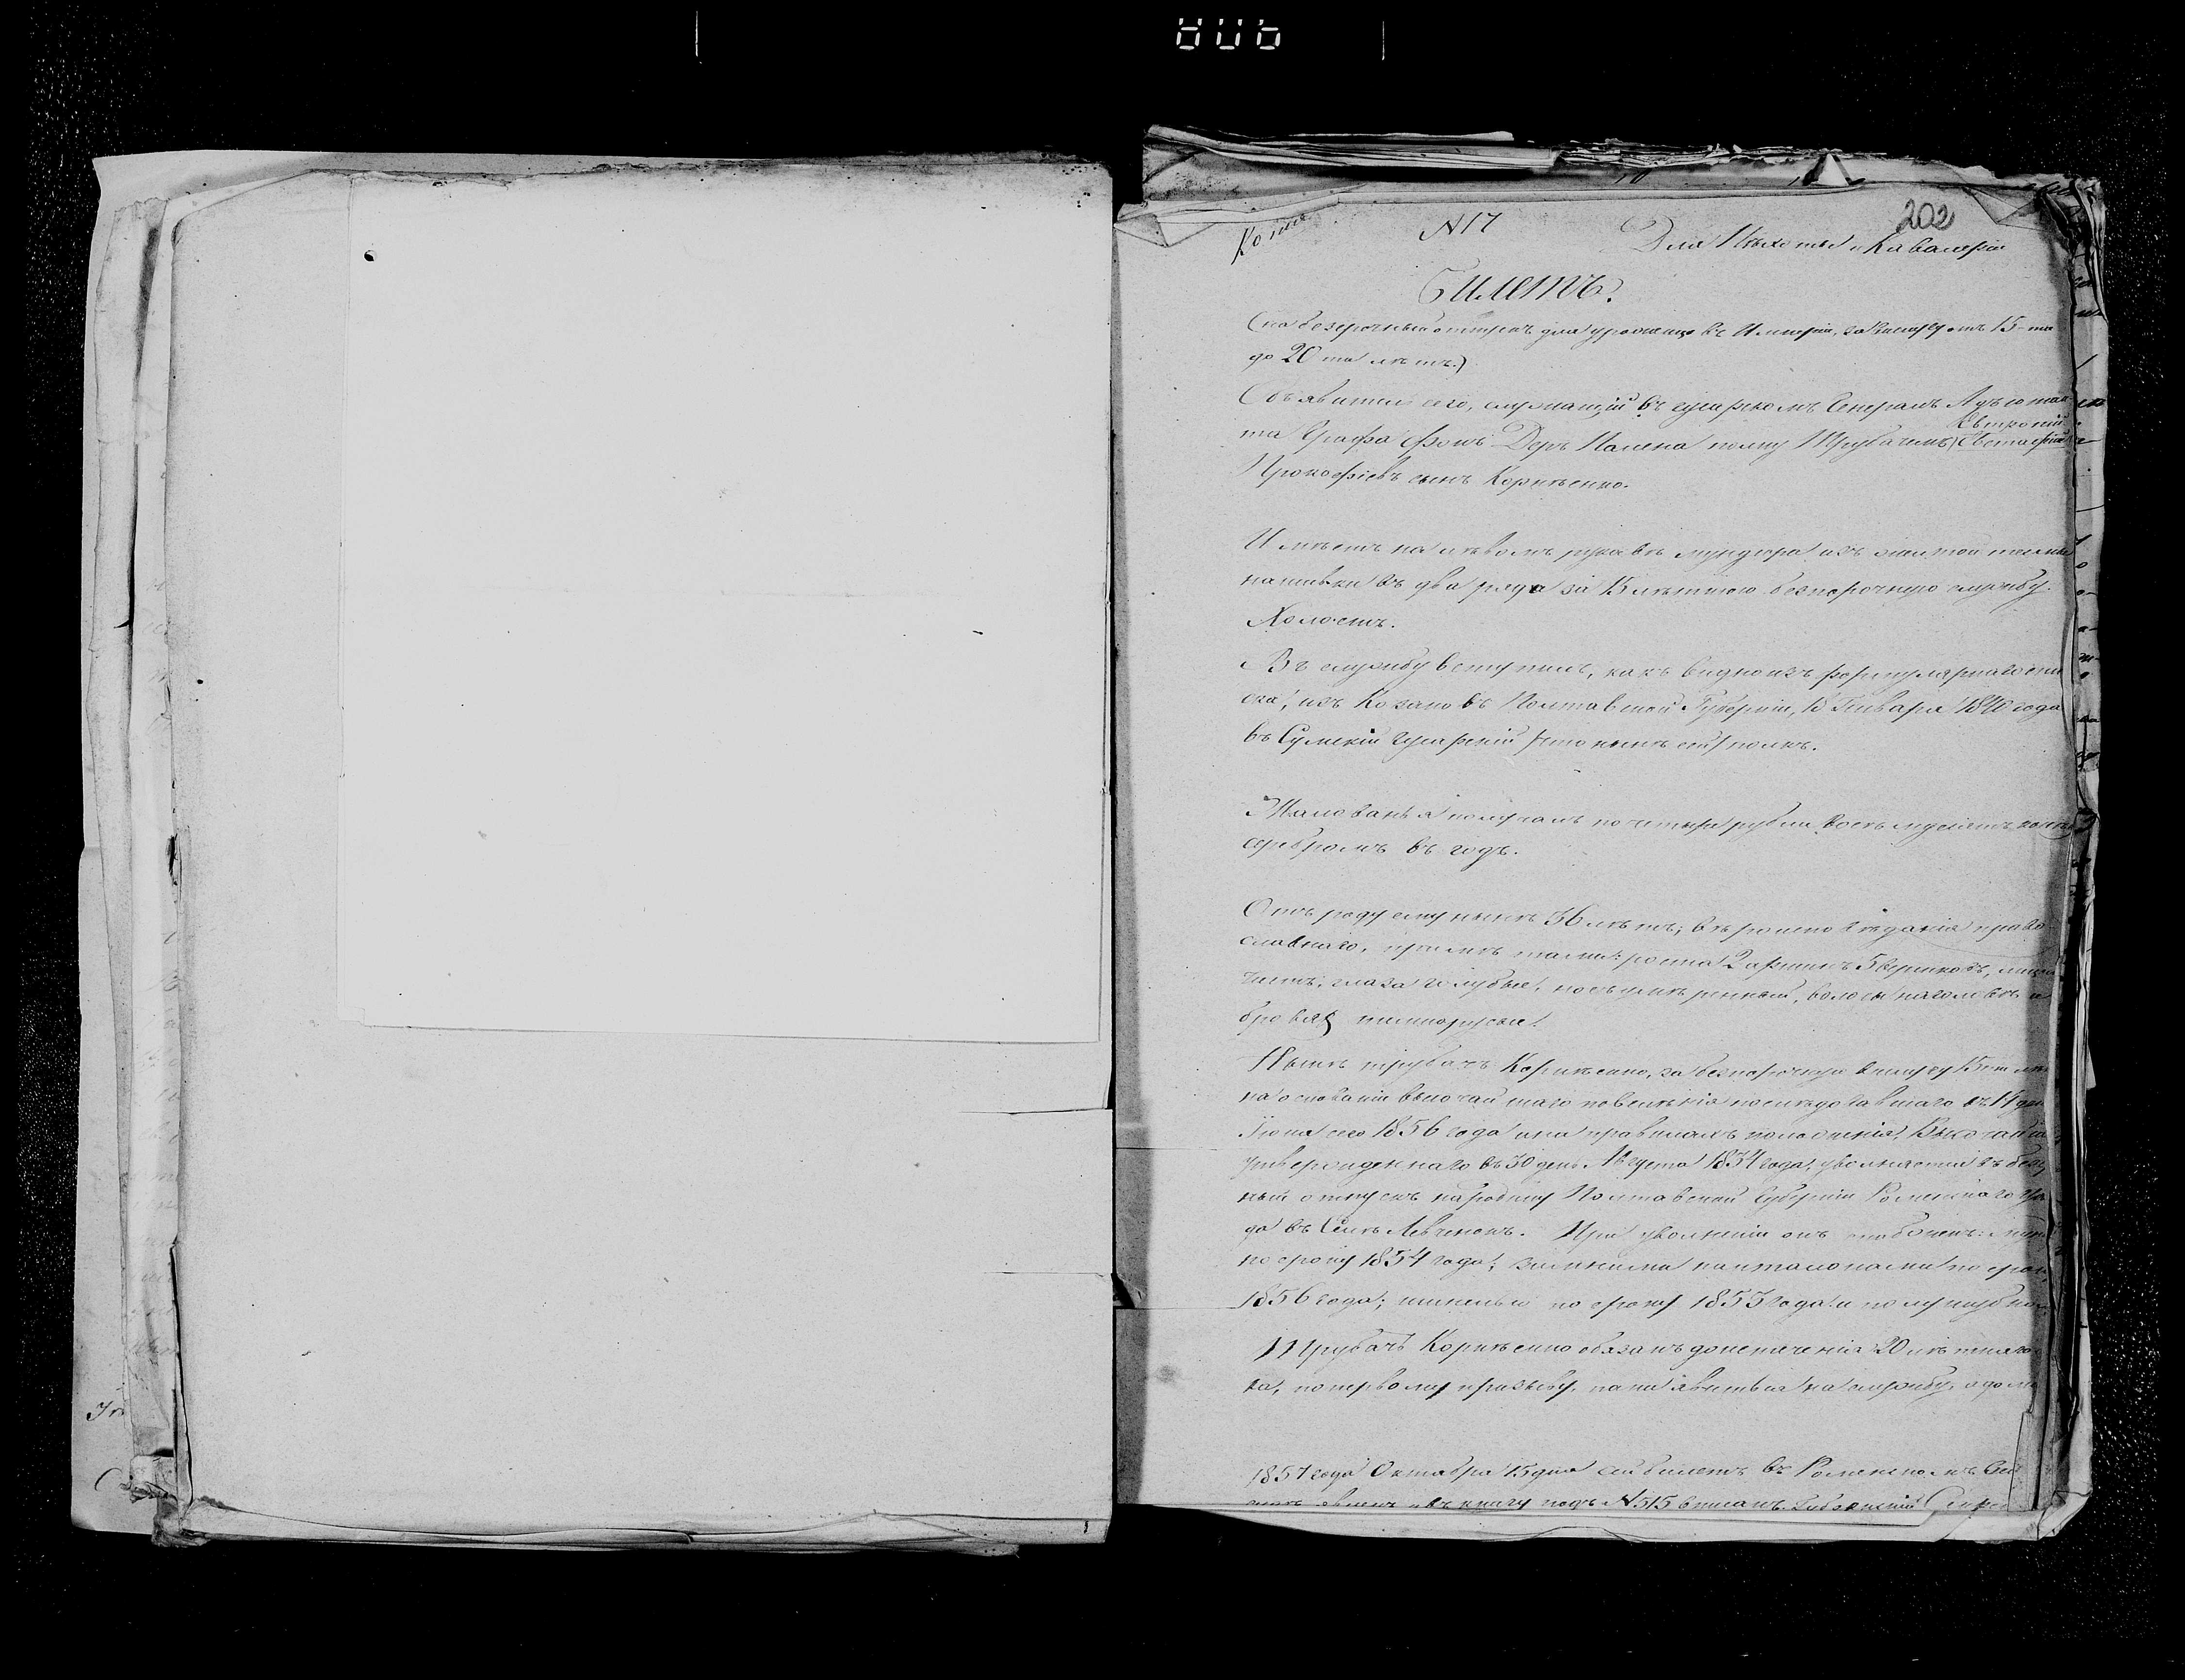 806
202
Копія
N 17
Для Пѣхоты и Кавалеріи
Билетъ.
(на безсрочный отпускъ для уроженцевъ Имперіи, за выслугу отъ 15-ти
до 20ти лѣтъ.)
Объявитель сего, служащій въ гусарскомъ Генералъ Адъютан-
та Графа фонъ Деръ Палена полку Трубачемъ, Евстафій
Прокофіевъ сынъ Корнѣенко.
Имѣетъ на лѣвомъ рукавѣ мундира изъ желтой тесьмы
нашивки въ два ряда за 15 лѣтнюю безпорочную службу.
Холостъ.
Въ службу вступилъ, какъ видно изъ формулярнаго спи
ска, изъ Козаковъ Полтавской Губерніи, 13 Января 1840 года
въ Сумскій Гусарскій /что нынѣ сей/ полкъ.
Жалованья получалъ по четыре рубля восемьдесятъ коп.
серебромъ въ годъ.
Отъ роду ему нынѣ 36 лѣтъ; вѣроисповѣданія право
славнаго, примѣтами: роста 2 аршинъ 5 вершковъ, лицо
чисто, глаза голубые, носъ умѣренный, волосы на головѣ и
бровяхъ темнорусые.
Нынѣ трубачъ Корнѣенко, за безпорочную выслугу 15ти лѣтъ
на основаніи высочайшаго повелѣнія послѣдовавшаго въ 14 день
Іюня сего 1856 года и на правилахъ положенія, Высочайше
утвержденнаго въ 30 день Августа 1834 года, увольняется въ безсроч
ный отпускъ на родину Полтавской Губерніи Роменскаго уѣз
да въ Селѣ Левченокъ. При увольненіи онъ снабженъ: мунд
по сроку 1854 года; зимними панталонами по сроку
1856 года; шинелью по сроку 1853 года и полушубко
Трубачъ Корнѣенко обязанъ до истеченія 20 лѣтняго
ка, по первому призыву, паки явиться на службу, а до
1857 года Октября 15 дня сей билетъ въ Роменскомъ
явленъ и въ книгу подъ N 515 вписанъ. Губернскій Секре